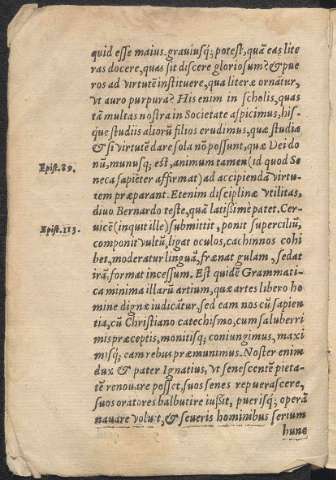 quid esse maius.grauiusq́; potest, quã eas lite
ras docere, quas sit discere gloriosum? & pue
ros ad virtutẽ instituere, qua literæ ornãtur,
vt auro purpura? His enim in scholis, quas
tã multas nostra in Societate aspicimus, his-
que studiis aliorũ filios erudimus, quæ studia
& si virtutẽ dare sola nõ possunt, quæ Dei do
nũ, munusq́; est, animum tamen (id quod Se
Epist. 89.
neca sapiẽter affirmat) ad accipiendã virtu-
tem præparant. Etenim disciplinæ vtilitas,
diuo Bernardo teste, quã latissimè patet. Cer-
Epist. 113.
uicẽ (inquit ille) submittit, ponit superciliũ,
componit vultũ, ligat oculos, cachinnos cohi
bet, moderatur linguã, frænat gulam, sedat
irã, format incessum. Est quidẽ Grammati-
ca minima illarũ artium, quæ artes libero ho
mine dignæ iudicãtur, sed cam nos cũ sapien
tia, cũ Christiano catechismo, cum saluberri
mis præceptis, monitisq́; coniungimus, maxi
misq́; eam rebus præmunimus. Noster enim
dux & pater Ignatius, vt senescentẽ pieta-
tẽ renouare posset, suos senes repuerascere,
suos oratores balbutire iußit, puerisq́; operã
nauare voluit, & seueris hominibus sertum
hunc